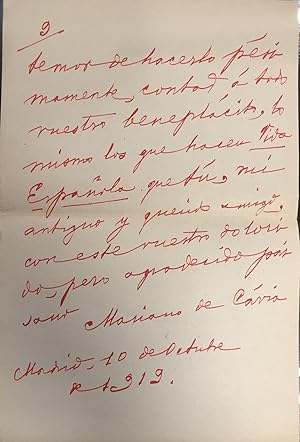 3
temor de hacerlo pési
mamente, contad á todo
vuestro beneplácito, lo
mismo los que hacen Vida
Española que tú, mi
antiguo y querido amigo,
con este vuestro dolori
do, pero agradecido pai
sano Mariano de Cávia
Madrid, 10 de Octubre
de 1919.